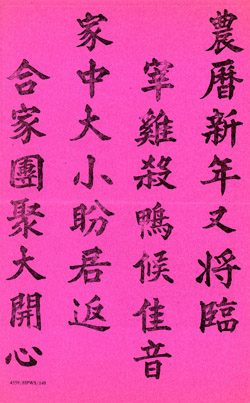 農曆新年又将臨
宰雞殺鴨候佳音
家中大小盼君返
合家團聚大開心
4539/HPWS/143